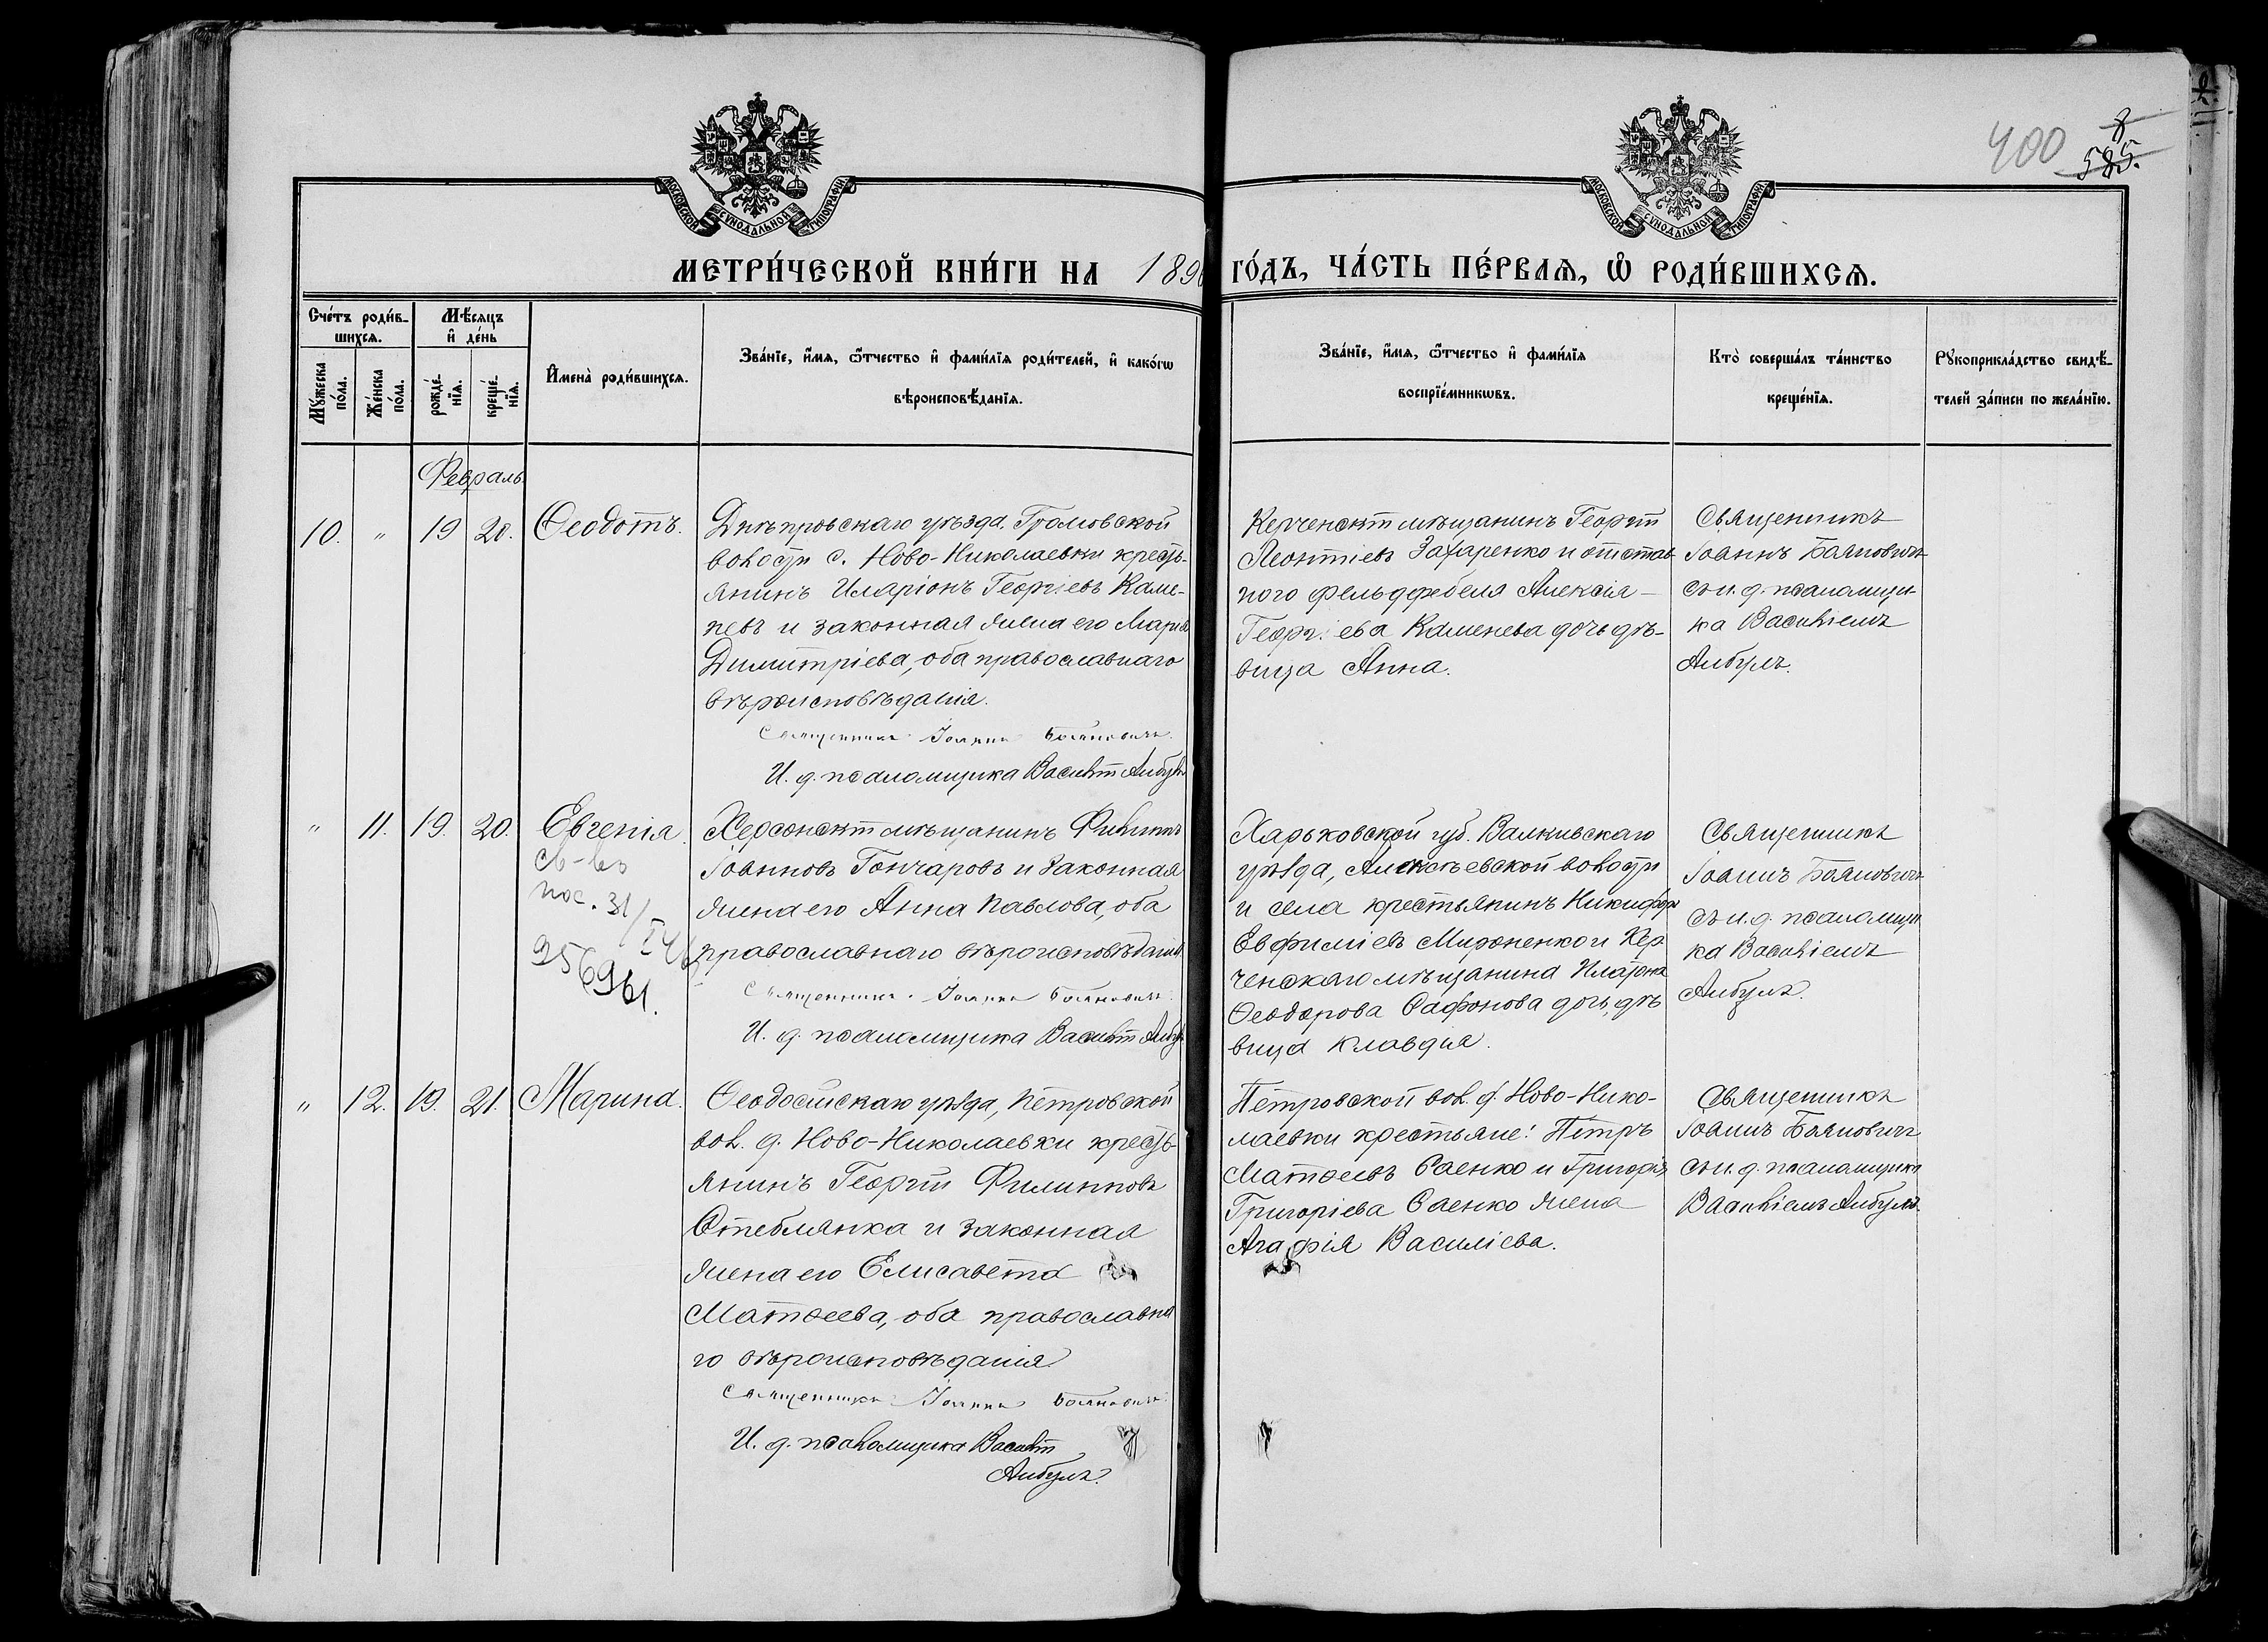 400
8
585.
МОСКОВСКОЙ СѴНОДАЛЬНОЙ ТИПОГРАФІИ
МОСКОВСКОЙ СѴНОДАЛЬНОЙ ТИПОГРАФІИ
МЕТРИ́ЧЕСКОЙ КНИ́ГИ НА 189
ГО́ДЪ, ЧА́СТЬ ПЕ́РВАѦ, Ѡ҆ РОДИ́ВШИХСѦ.
Сче́тъ роди́в-
шихсѧ.
Мѣ́сѧцъ
и҆ де́нь
Мꙋ́жеска
по́ла.
Же́нска
по́ла.
рожде́-
нїѧ.
креще́-
нїѧ.
И҆мена̀ роди́вшихсѧ.
Зва́нїе, и҆́мѧ, ѻ҆́тчество и҆ фами́лїѧ роди́телей, и҆ како́гѡ
вѣроисповѣ́данїѧ.
Зва́нїе, и҆́мѧ, ѻ҆́тчество и҆ фами́лїѧ
воспрїе́мникѡвъ.
Кто̀ соверша́лъ та́инство
креще́нїѧ.
Рꙋкоприкла́дство свидѣ́-
телей за́писи по жела́нїю.
Февраль.
10. " 19 20. Ѳеодотъ.
Днѣпровскаго уѣзда. Громовской
волости с. Ново-Николаевки кресть-
янинъ Иларіонъ Георгіевъ Каме-
невъ и законная жена его Марія
Димитріева, оба православнаго
вѣроисповѣданія.
Священникъ Іоаннъ Бояновичъ.
И. д. псаломщика Василій Албулъ
Керченскій мѣщанинъ Георгій
Леонтіевъ Захаренко и отстав-
ного фельдфебеля Алексія
Георгіева Каменева дочь дѣ-
вица Анна.
Священникъ
Іоаннъ Бояновичъ
съ и. д. псаломщи-
ка Василіемъ
Албулъ.
" 11. 19. 20. Евгенія.
св-во
пос. 31/
Херсонскій мѣщанинъ Филиппъ
Іоанновъ Гончаровъ и законная
жена его Анна Павлова, оба
православнаго вѣроисповѣданія
Священникъ Іоаннъ Бояновичъ.
И. д. псаломщика Василій Албулъ
Харьковской губ. Валкивскаго
уѣзда, Алексѣевской волости
и села крестьянинъ Никифоръ
Евфиміевъ Мироненко и Кер-
ченскаго мѣщанина Иларіона
Ѳеодорова Сафонова дочь, дѣ-
вица Клавдія.
Священникъ
Іоаннъ Бояновичъ
съ и. д. псаломщи-
ка Василіемъ
Албулъ.
" 12. 19. 21. Марина.
Ѳеодосійскаго уѣзда, Петровской
вол. д. Ново-Николаевки кресть-
янинъ Георгій Филипповъ
Стеблянка и законная
жена его Елисавета
Матѳеева, оба православна-
го вѣроисповѣданія
Священникъ Іоаннъ Бояновичъ.
И. д. псаломщика Василій
Албулъ.
Петровской вол. д. Ново-Нико-
лаевки крестьяне: Петръ
Матѳеевъ Саенко и Григорія
Григоріева Саенко жена
Агафія Василіева.
Священникъ
Іоаннъ Бояновичъ
съ и. д. псаломщика
Василіемъ Албулъ.